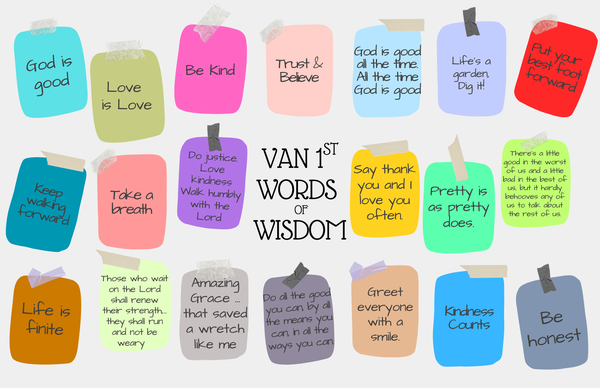 God is
good
Love
is Love
Be Kind
Trust &
Believe
God is good
all the time.
All the time
God is good
Life's a
garden,
Dig it!
Put your
best foot
forward
Keep
walking
forward
Take a
breath
Do justice.
Love
kindness
Walk humbly
with the
Lord
VAN 1ST
WORDS
OF
WISDOM
Say thank
you and I
love you
often.
Pretty is
as pretty
does.
There's a little
good in the worst
of us and a little
bad in the best of
us, but it hardly
behooves any of
us to talk about
the rest of us.
Life is
finite
Those who wait
on the Lord
shall renew
their strength...
they shall run
and not be
weary
Amazing
Grace ...
that saved
a wretch
like me
Do all the good
you can, by all
the means you
can, in all the
ways you can
Greet
everyone
with a
smile.
Kindness
Counts
Be
honest